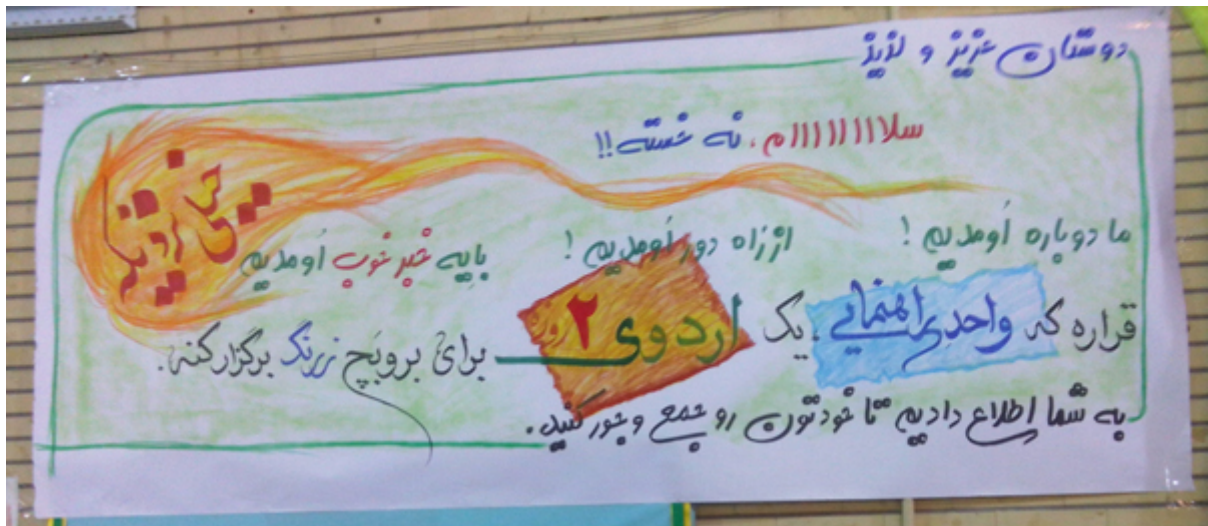 دوستان عزیز و لذیذ
سلااااااااام، نه خسته!!
ما دوباره اُومدیم! از راه دور اُومدیم! با یه خبر خوب اُومدیم
خیلی نزدیکه
قراره که واحد راهنمایی، یک اردوی ۲ روزه برای بروبچ زرنگ برگزار کنه.
به شما اطلاع دادیم تا خودتون رو جمع و جور کنید.